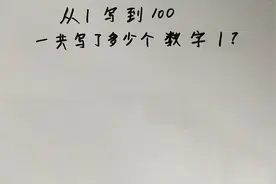 从1写到100
一共写了多少个数字1?